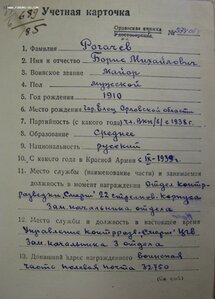 Учетная карточка
689
/85
Орденская книжка
Удостоверение №
1. Фамилия Рогачев
2. Имя и отчество Борис Михайлович
3. Воинское звание майор
4. Пол мужской
5. Год рождения 1910
6. Место рождения гор. Елец Орловской области
7. Партийность (с какого года) чл. ВКП/б/ с 1938 г.
8. Образование Среднее
9. Национальность русский
10. С какого года в Красной Армии с IX-1939 г.
11. Место службы (наименование части) и занимаемая
должность в момент награждения Отдел контр-
разведки „Смерш" 22 стрелков. корпуса
Зам. начальника отдела
12. Место службы и должность в настоящее время
Управление контрразв. „Смерш" ЦГВ
Зам. начальника 3 отдела
13. Домашний адрес награжденного воинская
часть полевая почта 32750